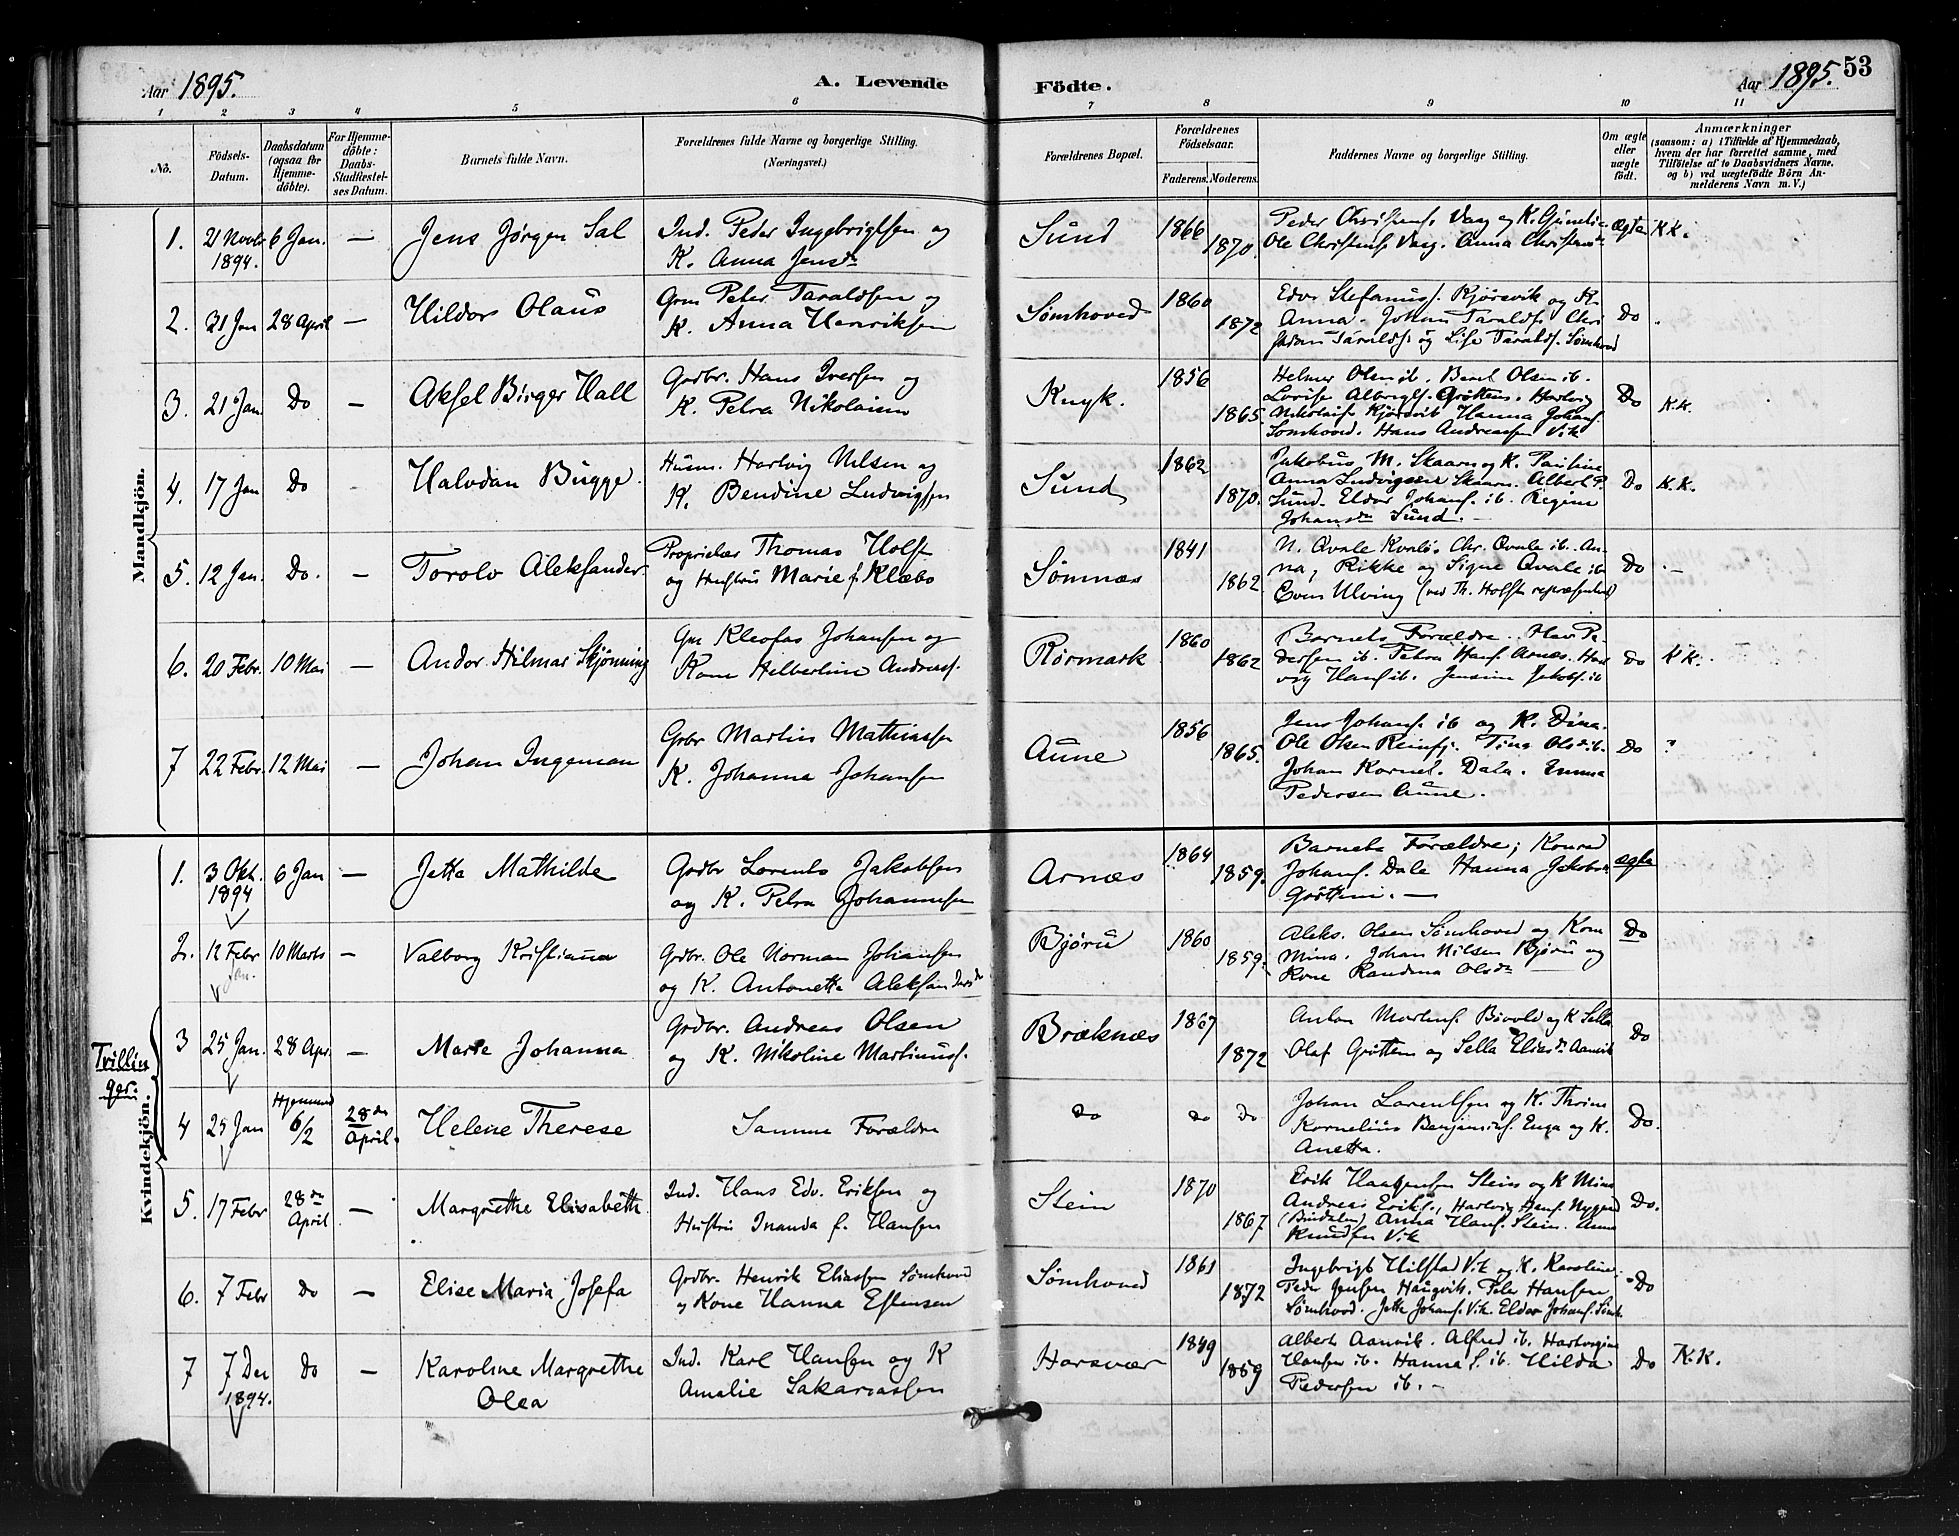 Aar 1895.
A. Levende
Födte.
Aar 1895.
53
1 2 3 4 5 6 7 8 9 10 11
No.
Födsels-Datum.
Daabsdatum (ogsaa for Hjemmedöbte).
For Hjemmedöbte: Daabs-Stadfæstelses Datum.
Barnets fulde Navn.
Forældrenes fulde Navne og borgerlige Stilling. (Næringsvei.)
Forældrenes Bopæl.
Forældrenes Födselsaar.
Faderens. Moderens.
Faddernes Navne og borgerlige Stilling.
Om ægte eller uægte födt.
Anmærkninger
(saasom: a) i Tilfælde af Hjemmedaab, hvem der har forrettet samme, med Tilföielse af to Daabsvidners Navne, og b) ved uægtefödte Börn Anmelderens Navn m. V.)
Mandkjön.
1. 21 Novbr 1894. 6 Jan. — Jens Jørgen Sal
Ind. Peder Ingebrigtsen og
K. Anna Jensdr
Sund 1866 1870.
Peder Christens. Vaag og K.
Ole Christens. Vaag. Anna Christensdr
Ægte K.K.
2. 31 Jan 28 April — Hildor Olaus
Grm Peter Taraldsen og
K. Anna Henriksen
Sømhoved 1860 1872
Edvr Stefanuss. Kjørsvik og K.
Anna. Johan Taralds.
Taralds. og Lise Taralds. Sømhoved
Do
3. 21 Jan. Do — Aksel Birger Hall
Grdbr. Hans Iversen og
K. Petra Nikolaisen
Knyk. 1856 1865.
Helmer Olsen ib. Berit Olsen ib.
Lovise Albrigts. Grøttem. Hartvig
Nikolais. Kjørsvik Hanna Johans.
Sømhoved. Hans Andreassen Vik
Do K.K.
4. 17 Jan Do Halvdan Bugge
Husm. Hartvig Nilsen og
K. Bendine Ludvigsen
Sund 1862 1870.
Jakobus M. Skaarn og K. Pauline
Anna Ludvigsen Skaarn. Albert P.
Sund. Eldor Johans. ib. Regine
Johansdr Sund. —
Do K.K.
5. 12 Jan. Do. — Torolv Aleksander
Proprietær Thomas Holst
og Hustru Marie f. Klæbo
Sømnæs 1841 1862
N. Qvale Kvaløs. Chr. Qvale ib. An-
na, Rikke og Signe Qvale ib
Even Ulving (ved Th. Holst repræsenteret)
Do —
6. 20 Febr. 10 Mai — Andor Hilmar Skjønning
Gm Kleofas Johansen og
Kone Helbertine Andreass.
Rørmark 1860 1862
Barnets Forældre. Olav Pe-
dersen ib. Petra Hans. Arnæs. Hart-
vig Hans. ib. Jensine Jakobs. ib
Do K K.
7 22 Febr. 12 Mai — Johan Ingeman
Grbr Martin Mathiassen
K. Johanna Johansen
Aune 1856 1865.
Jens Johans. ib og K. Dina.
Ole Olsen Reinfj. Tina Olsdr ib.
Johan Kornel. Dala. Emma
Pedersen Aune.
Do
Kvindekjön.
1. 3 Okt. 1894 6 Jan — Jetta Mathilde
Grdbr Lorents Jakobsen
og K. Petra Johannesen
Arnæs 1864 1859.
Barnets Forældre; Konrad
Johans. Dale Hanna Jakobs.
Grøttem. —
ægte
2. 12 Febr Jan. 10 Marts — Valborg Kristiana
Grdbr. Ole Norman Johansen
og K. Antonetta Aleksandersdr
Bjøru 1860 1859.
Aleks. Olsen Sømhoved og Kone
Mina. Johan Nilsen Bjøru og
Kone Randina Olsdr —
Do
Trillinger.
3 25 Jan. 28 Apr. — Marie Johanna
Grdbr. Andreas Olsen
og K. Nikoline Martinuss.
Bræknæs 1867 1872
Anton Martins. Bøvold og K Sella
Olaf Grøttem og Sella Eliasdr Aanvik
Do
4 25 Jan Hjemmed 6/2 28de April. Helene Therese
Samme Forældre
do do Do
Johan Lorentsen og K. Thrine
Kornelius Benjamins. Enga og K.
Anetta.
Do.
5. 17 Febr 28de April — Margrethe Elisabeth
Ind. Hans Edv. Eriksen og
Hustru Inanda f. Hansen
Stein 1870 1867
Erik Haagensen Stein og K Mina
Andreas Eriks., Hartvig Hans. Nygaard
(Bindalen) Anna Hans. Stein. Anna
Knudsen Vik
Do.
6. 7 Febr Do — Elise Maria Josefa
Grdbr. Henrik Eliassen Sømhoved
og Kone Hanna Estensen
Sømhoved 1861 1872
Ingebrigt Hilstad Vik og K. Karoline,
Peder Jensen Haugvik. Peter Hansen
Sømhoved. Jetta Johans. Vik. Eldor Johans. Sømh.
Do
7 7 Dec 1894. Do — Karoline Margrethe Olea
Ind. Karl Hansen og K
Amalie Sakariassen
Horsvær 1849 1859
Albert Aanvik. Alfred ib. Hartvigine
Hansen ib. Hanna S. ib. Hilda
Pedersen ib. —
Do K.K.